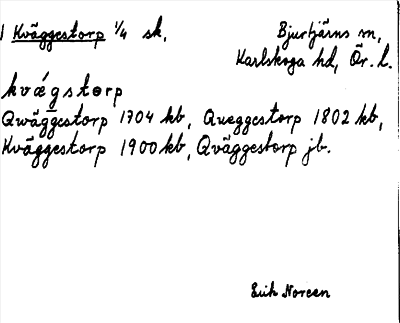 1 Kväggestorp 1/4 sk.
Bjurtjärns sn,
Karlskoga hd, Ör. l.
kvǽgstɵrp
Qwäggestorp 1704 kb, Queggestorp 1802 kb,
Kväggestorp 1900 kb, Qväggestorp jb.
Erik Noreen